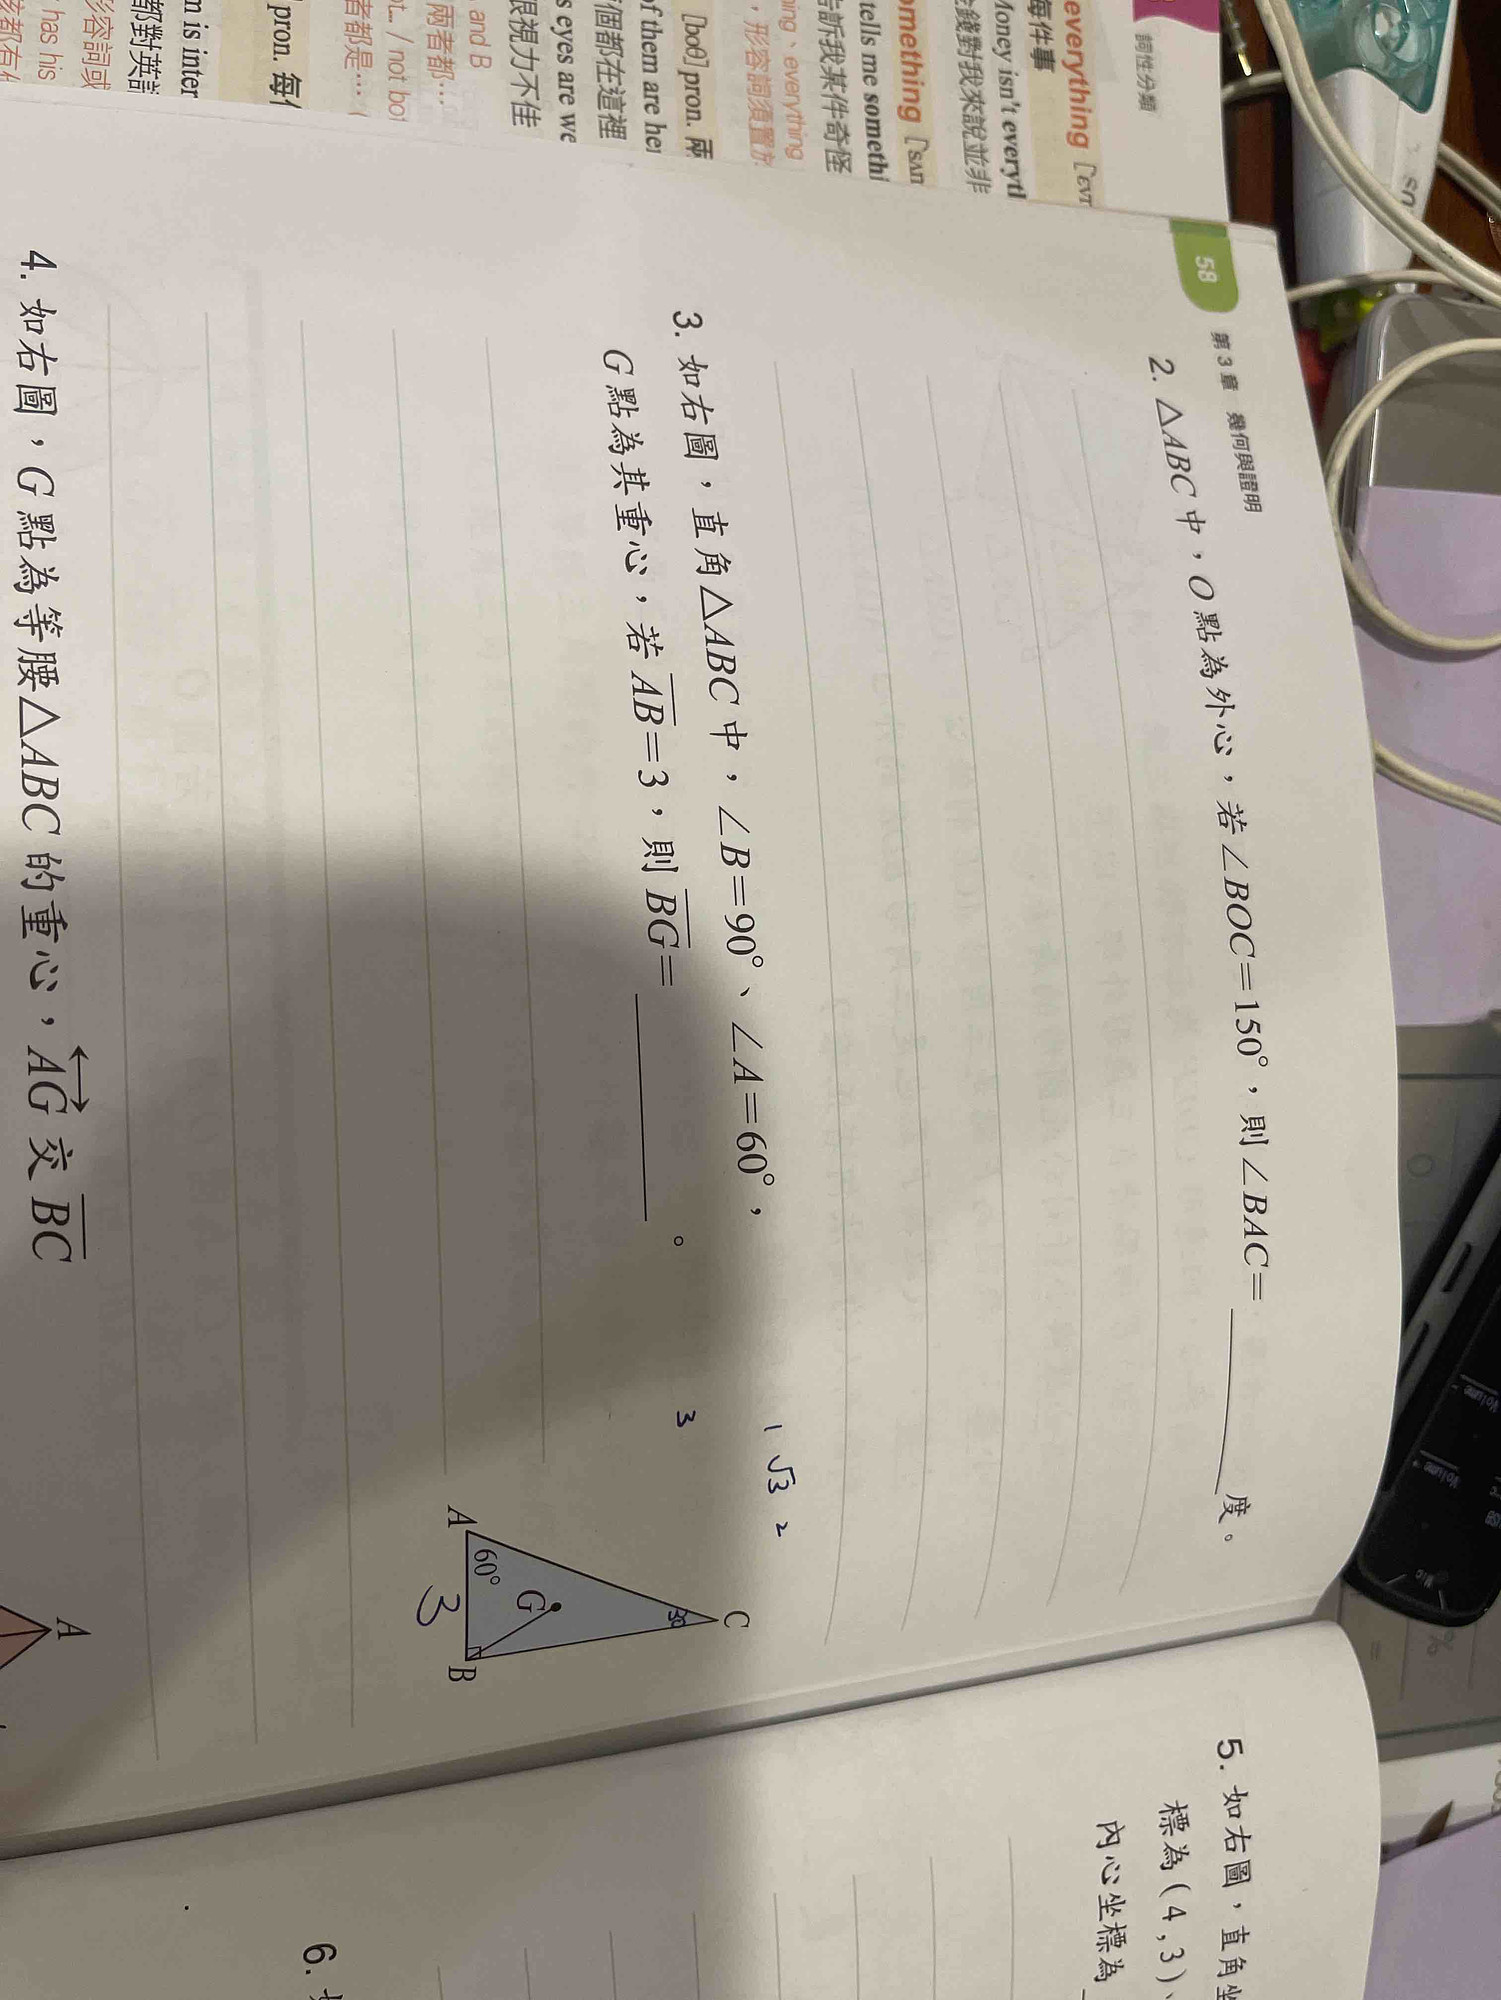 58 第3章 幾何與證明
2. △ABC中，O點為外心，若∠BOC=150°，則∠BAC=＿＿＿＿度。
3. 如右圖，直角△ABC中，∠B=90°、∠A=60°，
G點為其重心，若AB=3，則BG=＿＿＿＿。
1 √3 2
3
C
30
G
60°
A
B
3
4. 如右圖，G點為等腰△ABC的重心，AG交BC
A
5. 如右圖，直角坐
標為(4,3)、
內心坐標為
6.
詞性分類
everything
每件事
Money isn't everytl
金錢對我來說並非
omething
tells me somethi
告訴我某件奇怪
ning、everything
，形容詞須置於
[boθ] pron. 兩
of them are her
個都在這裡
s eyes are we
眼視力不佳
and B
兩者都…
ot... / not bot
者都是…
pron. 每
m is inter
都對英語
形容詞或
has his
Volume -
Volume +
Mic
%
=